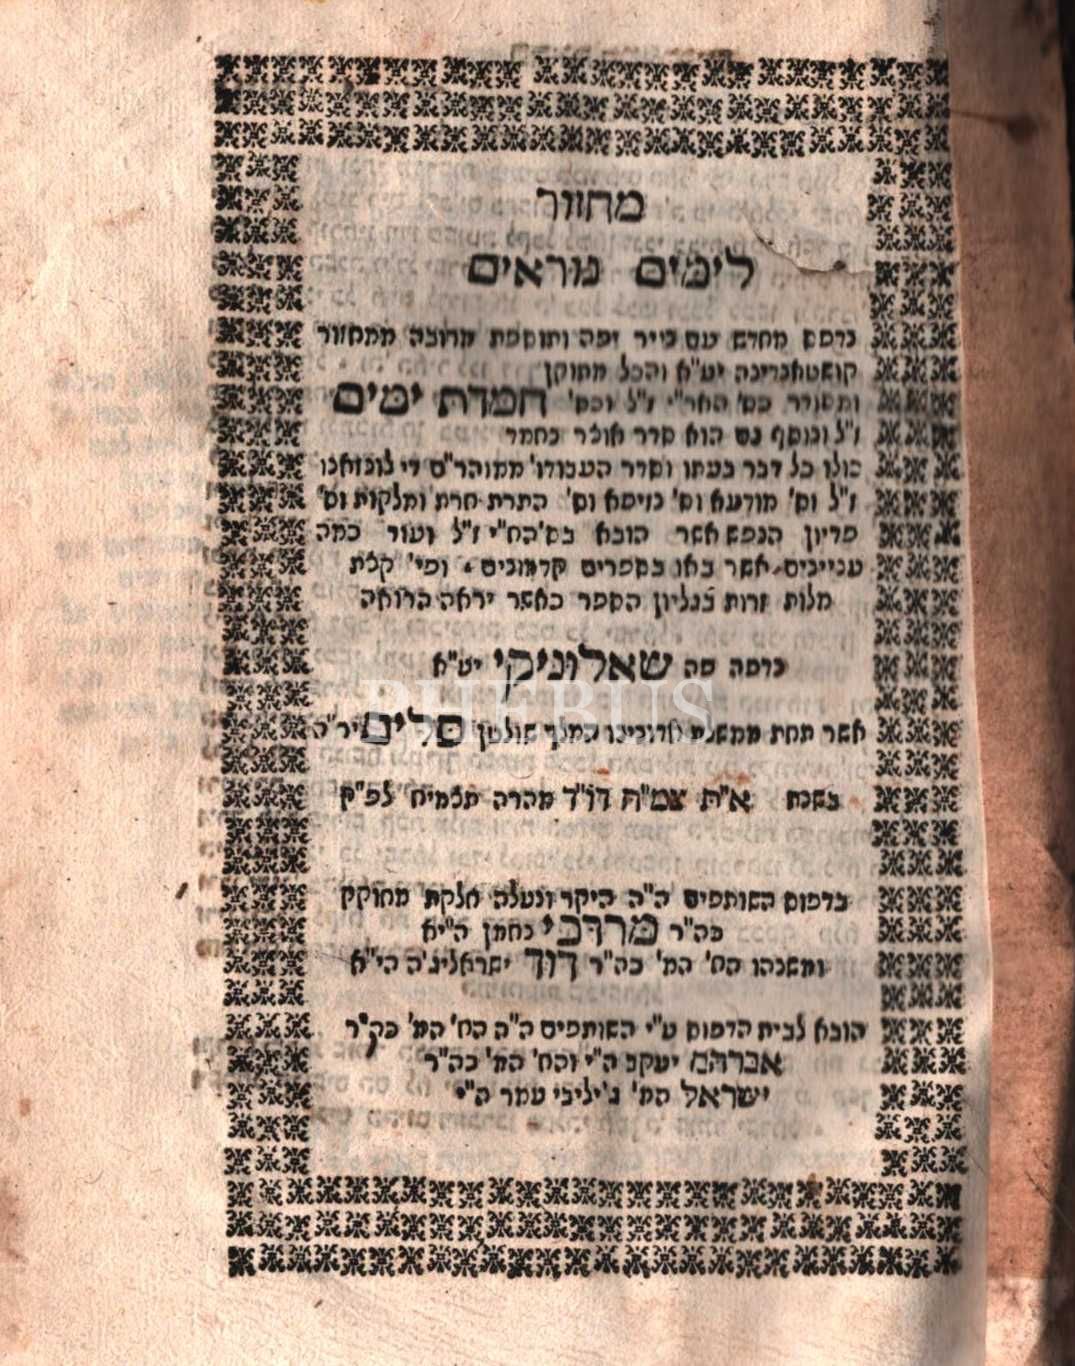 מחזור
לימים נוראים
נדפס מחדש עם נייר יפה ותוספת מרובה ממחזור
קושטאנדינה יע"א והכל מתוקן
ומסודר כס' האר"י ז"ל וכס' חמדת ימים
ז"ל ונוסף גם הוא סדר אוצר נחמד
כולו כל דבר בעתו וסדר העבודה ממוהר"ם די לונזאנו
ז"ל וס' מודעא וס' כניסא וס' התרת חרת ומלקות וס'
פדיון הנפש אשר הובא בס' הח"י ז"ל ועוד כמה
עניינים אשר באו בספרים קדמונים ופי' קצת
מלות זרות בגליון הספר כאשר יראה הרואה
נדפס פה שאלוניקי יע"א
אשר תחת ממשלת אדונינו המלך שולטן סלים יר"ה
בשנת א"ת צמ"ח דו"ד מהרה תצמיח לפ"ק
בדפוס השותפים ה"ה היקר ונעלה חלקת מחוקק
כה"ר מרדכי נחמן ה"י"א
ומשנהו הח' המ' כה"ר דוד ישראליג'ה הי"א
הובא לבית הדפוס ע"י השותפים ה"ה הח' המ' כה"ר
אברהם יעקב ה"י והח' המ' כה"ר
ישראל המ' ג'יליבי עמר ה"י
PHEBUS